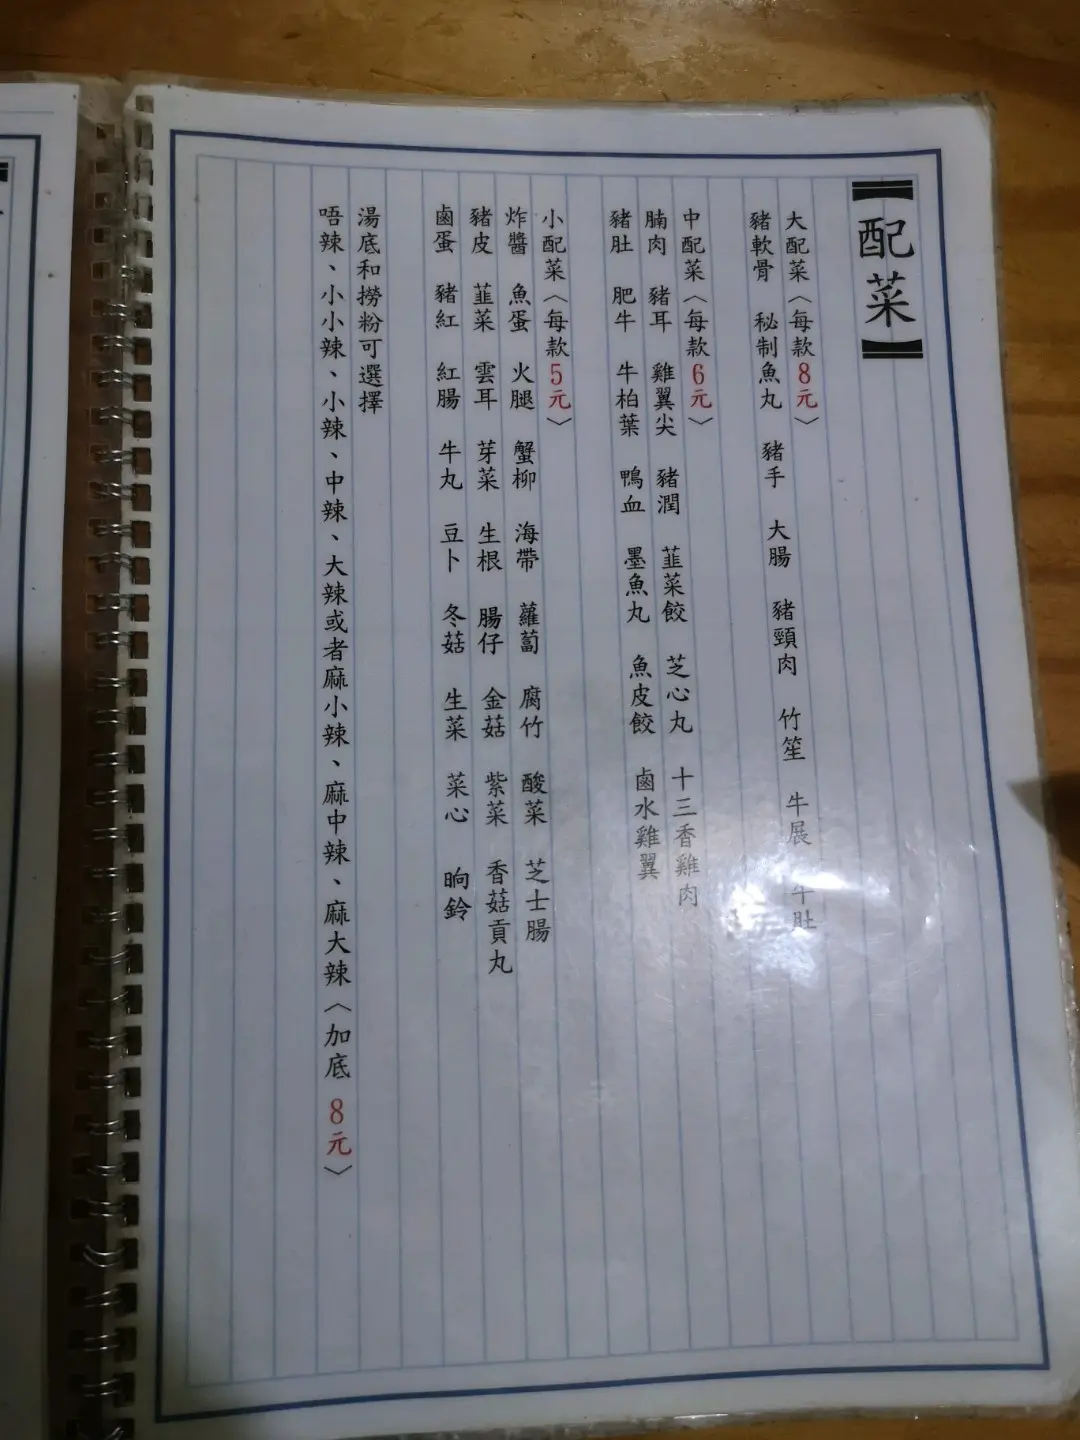 【配菜】
大配菜〈每款8元〉
豬軟骨 秘制魚丸 豬手 大腸 豬頸肉 竹笙 牛展 牛肚
中配菜〈每款6元〉
腩肉 豬耳 雞翼尖 豬潤 韮菜餃 芝心丸 十三香雞肉
豬肚 肥牛 牛柏葉 鴨血 墨魚丸 魚皮餃 鹵水雞翼
小配菜〈每款5元〉
炸醬 魚蛋 火腿 蟹柳 海帶 蘿蔔 腐竹 酸菜 芝士腸
豬皮 韮菜 雲耳 芽菜 生根 腸仔 金菇 紫菜 香菇貢丸
鹵蛋 豬紅 紅腸 牛丸 豆卜 冬菇 生菜 菜心 晌鈴
湯底和撈粉可選擇
唔辣、小小辣、小辣、中辣、大辣或者麻小辣、麻中辣、麻大辣〈加底8元〉